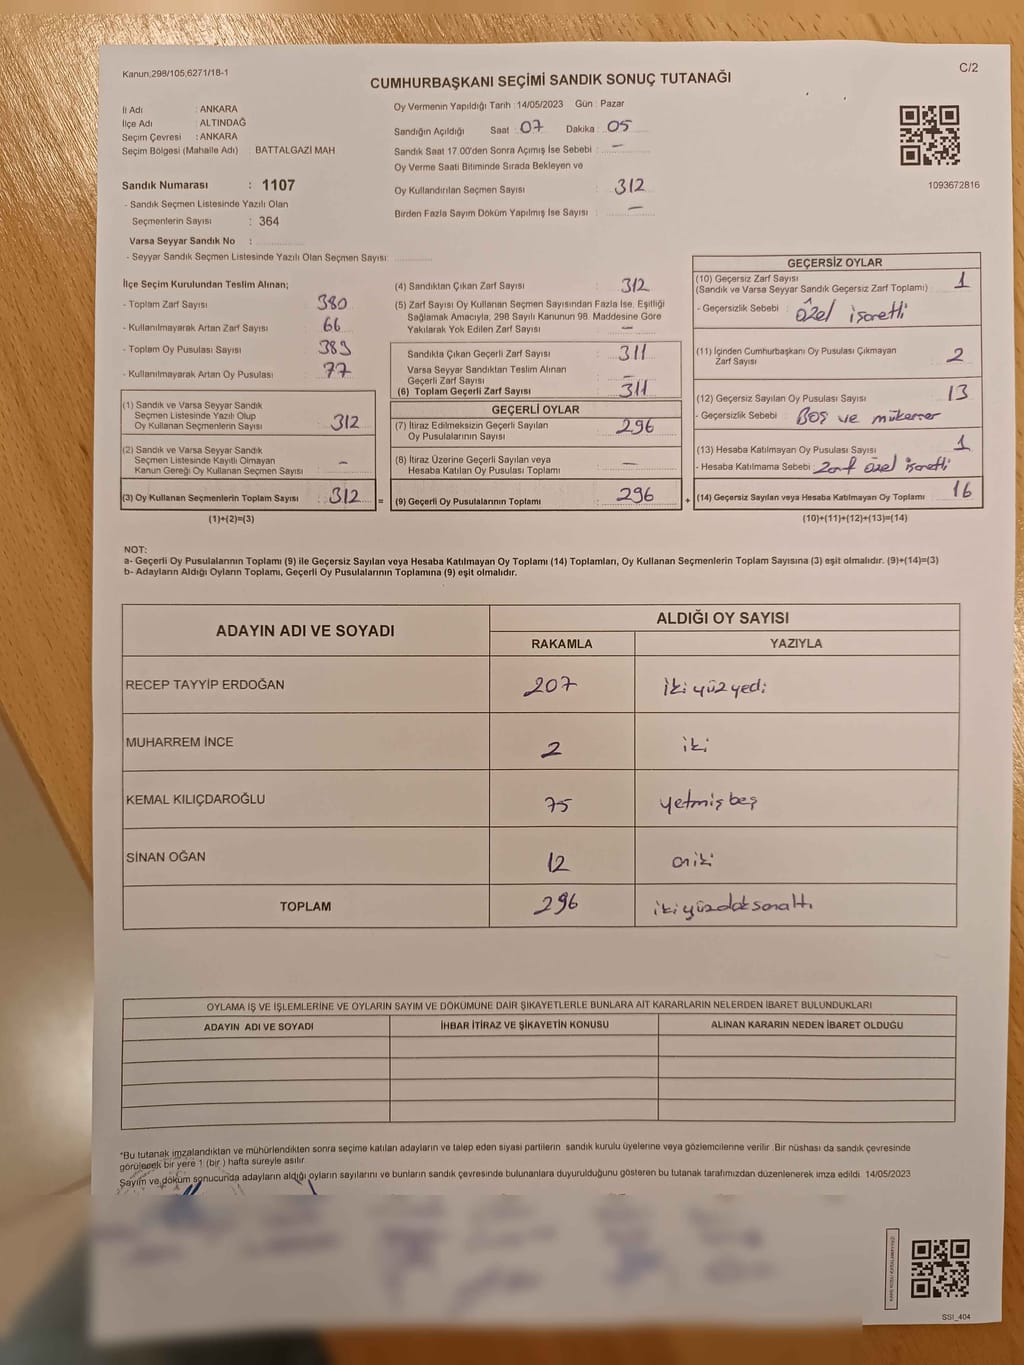 Kanun;298/105;6271/18-1
C/2
CUMHURBAŞKANI SEÇİMİ SANDIK SONUÇ TUTANAĞI
İl Adı : ANKARA
İlçe Adı : ALTINDAĞ
Seçim Çevresi : ANKARA
Seçim Bölgesi (Mahalle Adı) : BATTALGAZİ MAH
Sandık Numarası : 1107
- Sandık Seçmen Listesinde Yazılı Olan
Seçmenlerin Sayısı : 364
Varsa Seyyar Sandık No :
- Seyyar Sandık Seçmen Listesinde Yazılı Olan Seçmen Sayısı:
Oy Vermenin Yapıldığı Tarih :14/05/2023 Gün : Pazar
Sandığın Açıldığı Saat : 07 Dakika : 05
Sandık Saat 17.00'den Sonra Açımış İse Sebebi : —
Oy Verme Saati Bitiminde Sırada Bekleyen ve
Oy Kullandırılan Seçmen Sayısı : 312
Birden Fazla Sayım Döküm Yapılmış İse Sayısı : —
1093672816
İlçe Seçim Kurulundan Teslim Alınan;
- Toplam Zarf Sayısı : 380
- Kullanılmayarak Artan Zarf Sayısı : 66
- Toplam Oy Pusulası Sayısı : 389
- Kullanılmayarak Artan Oy Pusulası : 77
(1) Sandık ve Varsa Seyyar Sandık
Seçmen Listesinde Yazılı Olup
Oy Kullanan Seçmenlerin Sayısı : 312
(2) Sandık ve Varsa Seyyar Sandık
Seçmen Listesinde Kayıtlı Olmayan
Kanun Gereği Oy Kullanan Seçmen Sayısı : —
(3) Oy Kullanan Seçmenlerin Toplam Sayısı : 312 =
(1)+(2)=(3)
(4) Sandıktan Çıkan Zarf Sayısı : 312
(5) Zarf Sayısı Oy Kullanan Seçmen Sayısından Fazla İse, Eşitliği
Sağlamak Amacıyla, 298 Sayılı Kanunun 98. Maddesine Göre
Yakılarak Yok Edilen Zarf Sayısı : —
Sandıkta Çıkan Geçerli Zarf Sayısı : 311
Varsa Seyyar Sandıktan Teslim Alınan
Geçerli Zarf Sayısı : —
(6) Toplam Geçerli Zarf Sayısı : 311
GEÇERLİ OYLAR
(7) İtiraz Edilmeksizin Geçerli Sayılan
Oy Pusulalarının Sayısı : 296
(8) İtiraz Üzerine Geçerli Sayılan veya
Hesaba Katılan Oy Pusulası Toplamı : —
(9) Geçerli Oy Pusulalarının Toplamı : 296 +
GEÇERSİZ OYLAR
(10) Geçersiz Zarf Sayısı : 1
(Sandık ve Varsa Seyyar Sandık Geçersiz Zarf Toplamı)
- Geçersizlik Sebebi : özel işaretli
(11) İçinden Cumhurbaşkanı Oy Pusulası Çıkmayan
Zarf Sayısı : 2
(12) Geçersiz Sayılan Oy Pusulası Sayısı : 13
- Geçersizlik Sebebi : Boş ve mükerrer
(13) Hesaba Katılmayan Oy Pusulası Sayısı : 1
- Hesaba Katılmama Sebebi : Zarf özel işaretli
(14) Geçersiz Sayılan veya Hesaba Katılmayan Oy Toplamı : 16
(10)+(11)+(12)+(13)=(14)
NOT:
a- Geçerli Oy Pusulalarının Toplamı (9) ile Geçersiz Sayılan veya Hesaba Katılmayan Oy Toplamı (14) Toplamları, Oy Kullanan Seçmenlerin Toplam Sayısına (3) eşit olmalıdır. (9)+(14)=(3)
b- Adayların Aldığı Oyların Toplamı, Geçerli Oy Pusulalarının Toplamına (9) eşit olmalıdır.
ADAYIN ADI VE SOYADI
ALDIĞI OY SAYISI
RAKAMLA YAZIYLA
RECEP TAYYİP ERDOĞAN 207 iki yüz yedi
MUHARREM İNCE 2 iki
KEMAL KILIÇDAROĞLU 75 yetmiş beş
SİNAN OĞAN 12 oniki
TOPLAM 296 ikiyüzdoksanaltı
OYLAMA İŞ VE İŞLEMLERİNE VE OYLARIN SAYIM VE DÖKÜMÜNE DAİR ŞİKAYETLERLE BUNLARA AİT KARARLARIN NELERDEN İBARET BULUNDUKLARI
ADAYIN ADI VE SOYADI İHBAR İTİRAZ VE ŞİKAYETİN KONUSU ALINAN KARARIN NEDEN İBARET OLDUĞU
*Bu tutanak imzalandıktan ve mühürlendikten sonra seçime katılan adayların ve talep eden siyasi partilerin sandık kurulu üyelerine veya gözlemcilerine verilir .Bir nüshası da sandık çevresinde
görülecek bir yere 1 (bir ) hafta süreyle asılır
Sayım ve döküm sonucunda adayların aldığı oyların sayılarını ve bunların sandık çevresinde bulunanlara duyurulduğunu gösteren bu tutanak tarafımızdan düzenlenerek imza edildi. 14/05/2023
SSİ_404